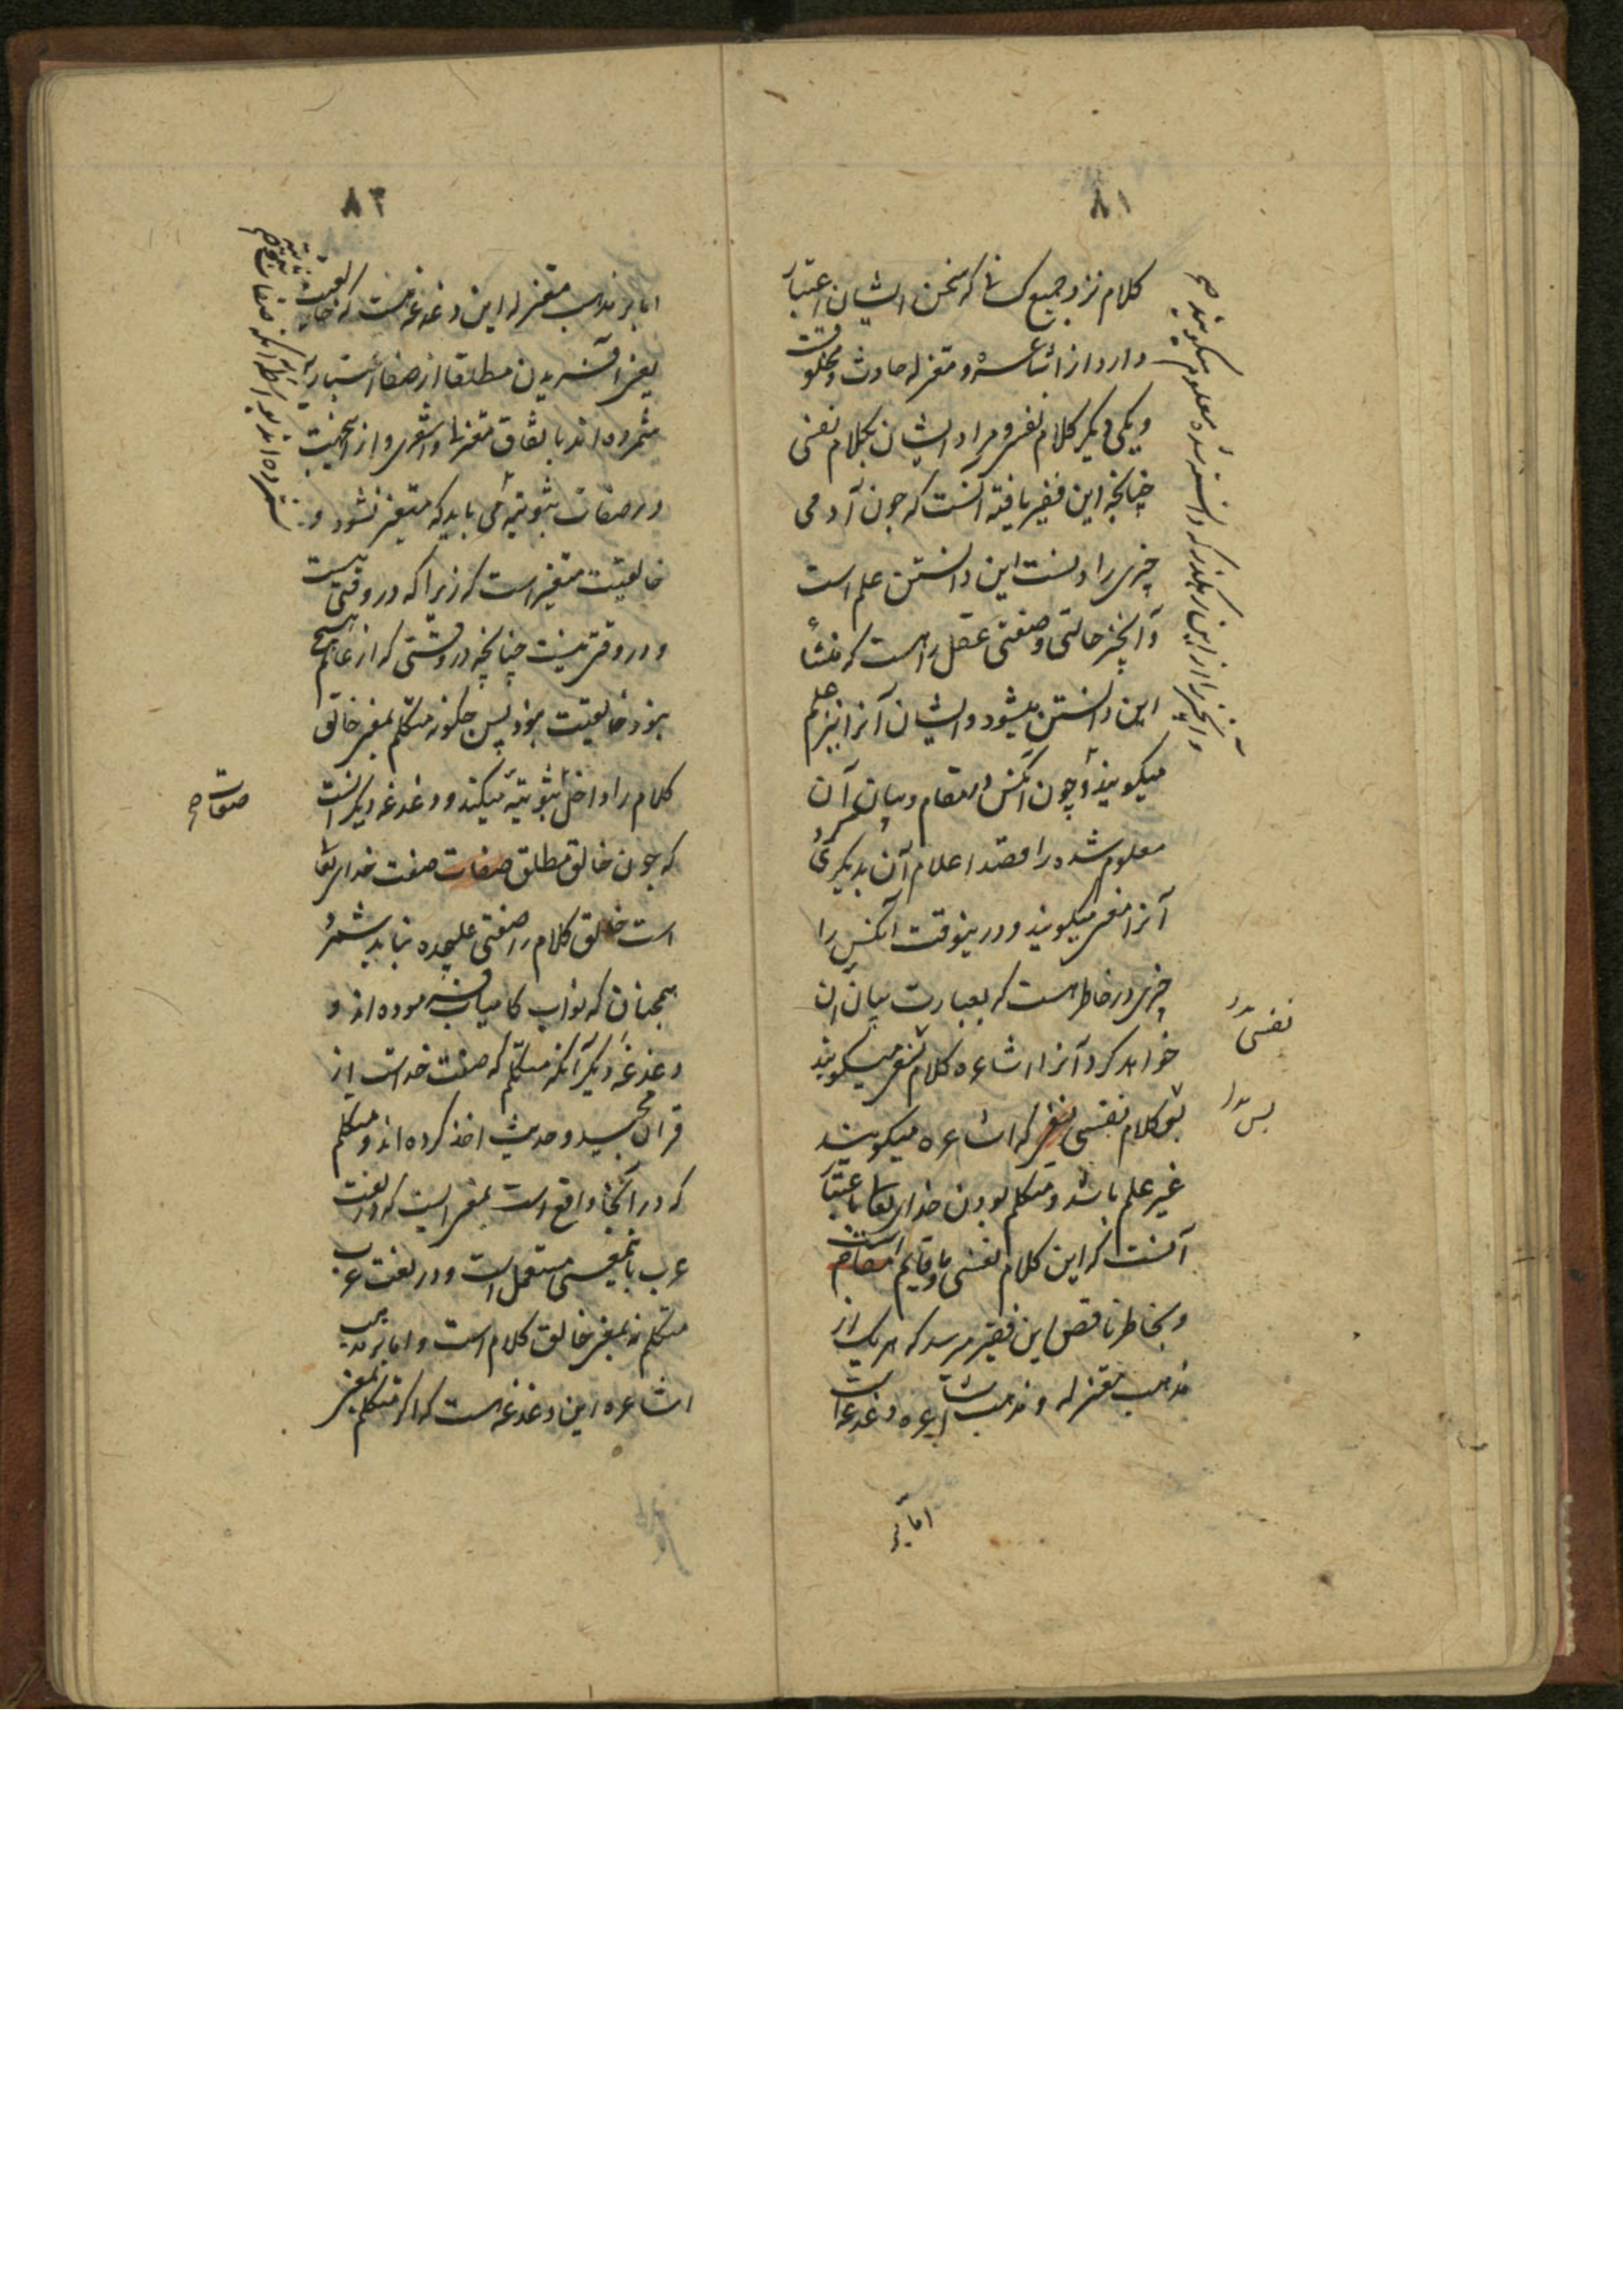 ۸۱
کلام نزد جمیع کسانی که سخن ایشان اعتبار
دارد از اشاعره و معتزله حادث و مخلوقت
و یکی دیگر کلام نفسی و مراد ایشان بکلام نفسی
چنانچه این فقیر یافته آنست که چون آدمی
چیزی را دانست این دانستن علم است
و آنچیز حالتی و صفتی عقل راست که منشأ
این دانستن میشود و ایشان آنرا نیز علم
میکویند و چون آنکس در مقام و بیان آن
معلوم شده را قصد اعلام آن بدیکری کرد
آنرا میکویند و درینوقت آنکس را
چیزی در خاطر هست که بعبارت بیان آن
خواهد کرد آنرا اشاعره کلام نفسی میکویند
کلام نفسی که اشاعره میکویند
غیر علم باشد و متکلم بودن خدای تعالی باعتبار
آنست که این کلام نفسی باو قایم است
و بخاطر ناقص این فقیر میرسد که هر یک از
مذهب معتزله و مذهب اشاعره دغدغه است
اما بر
و آنچیز را از این رهکذر که دانسته شده معلوم میکویند صح
نفسی
پس
۸۲
اما بر مذهب معتزله این دغدغه هست که خالقیت
یعنی آفریدن مطلقا از صفات اعتباریه
شمرده‌اند باتفاق معتزله و اشعری و از اینجهت
در صفات ثبوتیه می باید که متغیر نشود و
خالقیت متغیر است که زیرا که در وقتی هست
و در وقتی نیست چنانچه در وقتی که از عالم هیچ
نبود خالقیت نبود پس چکونه متکلم بمعنی خالق
کلام را داخل ثبوتیه میکنند و دغدغه دیکر آنست
که چون خالق مطلق صفات صفت خدای تعالی
است خالق کلام را صفتی علیحده نباید شمرد
همچنان که نواب کامیاب فرموده‌اند و
دغدغه دیکر آنکه متکلم که صفت خداست از
قرآن مجید و حدیث اخذ کرده‌اند و متکلم
که در آنجا واقع است بمعنی است که در لغت
عرب بانمعنی مستعمل است و در لغت عرب
متکلم نه بمعنی خالق کلام است و اما بر مذهب
اشاعره این دغدغه هست که اکر متکلم بمعنی
صفات صح